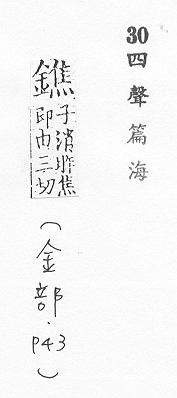 30四聲篇海
鐎
子消昨焦
即由三切
(金部.P43)